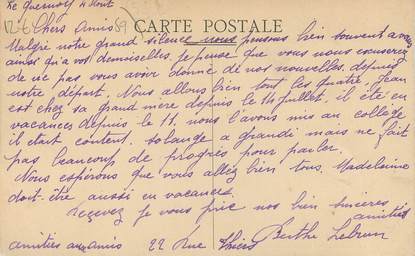 Le Guernolé 4 Août
12-6 89
CARTE POSTALE
Chers Amis
Malgré notre grand silence nous pensons bien souvent a vous
ainsi qu'a vos demoiselles, je pense que vous nous excuserez
de ne pas vous avoir donné de nos nouvelles depuis
notre départ. Nous allons bien tout les quatre, Jean
est chez sa grand mère depuis le 14 juillet, il été en
vacances depuis le 11. nous l'avons mis au collège
il était content. solange a grandi mais ne fait
pas beaucoup de progrès pour parler.
Nous espérons que vous allez bien tous. Madeleine
doit-être aussi en vacances.
Recevez je vous prie nos bien sincères
amitiés
amities aux amis 22 Rue Thiers Berthe Lebrun